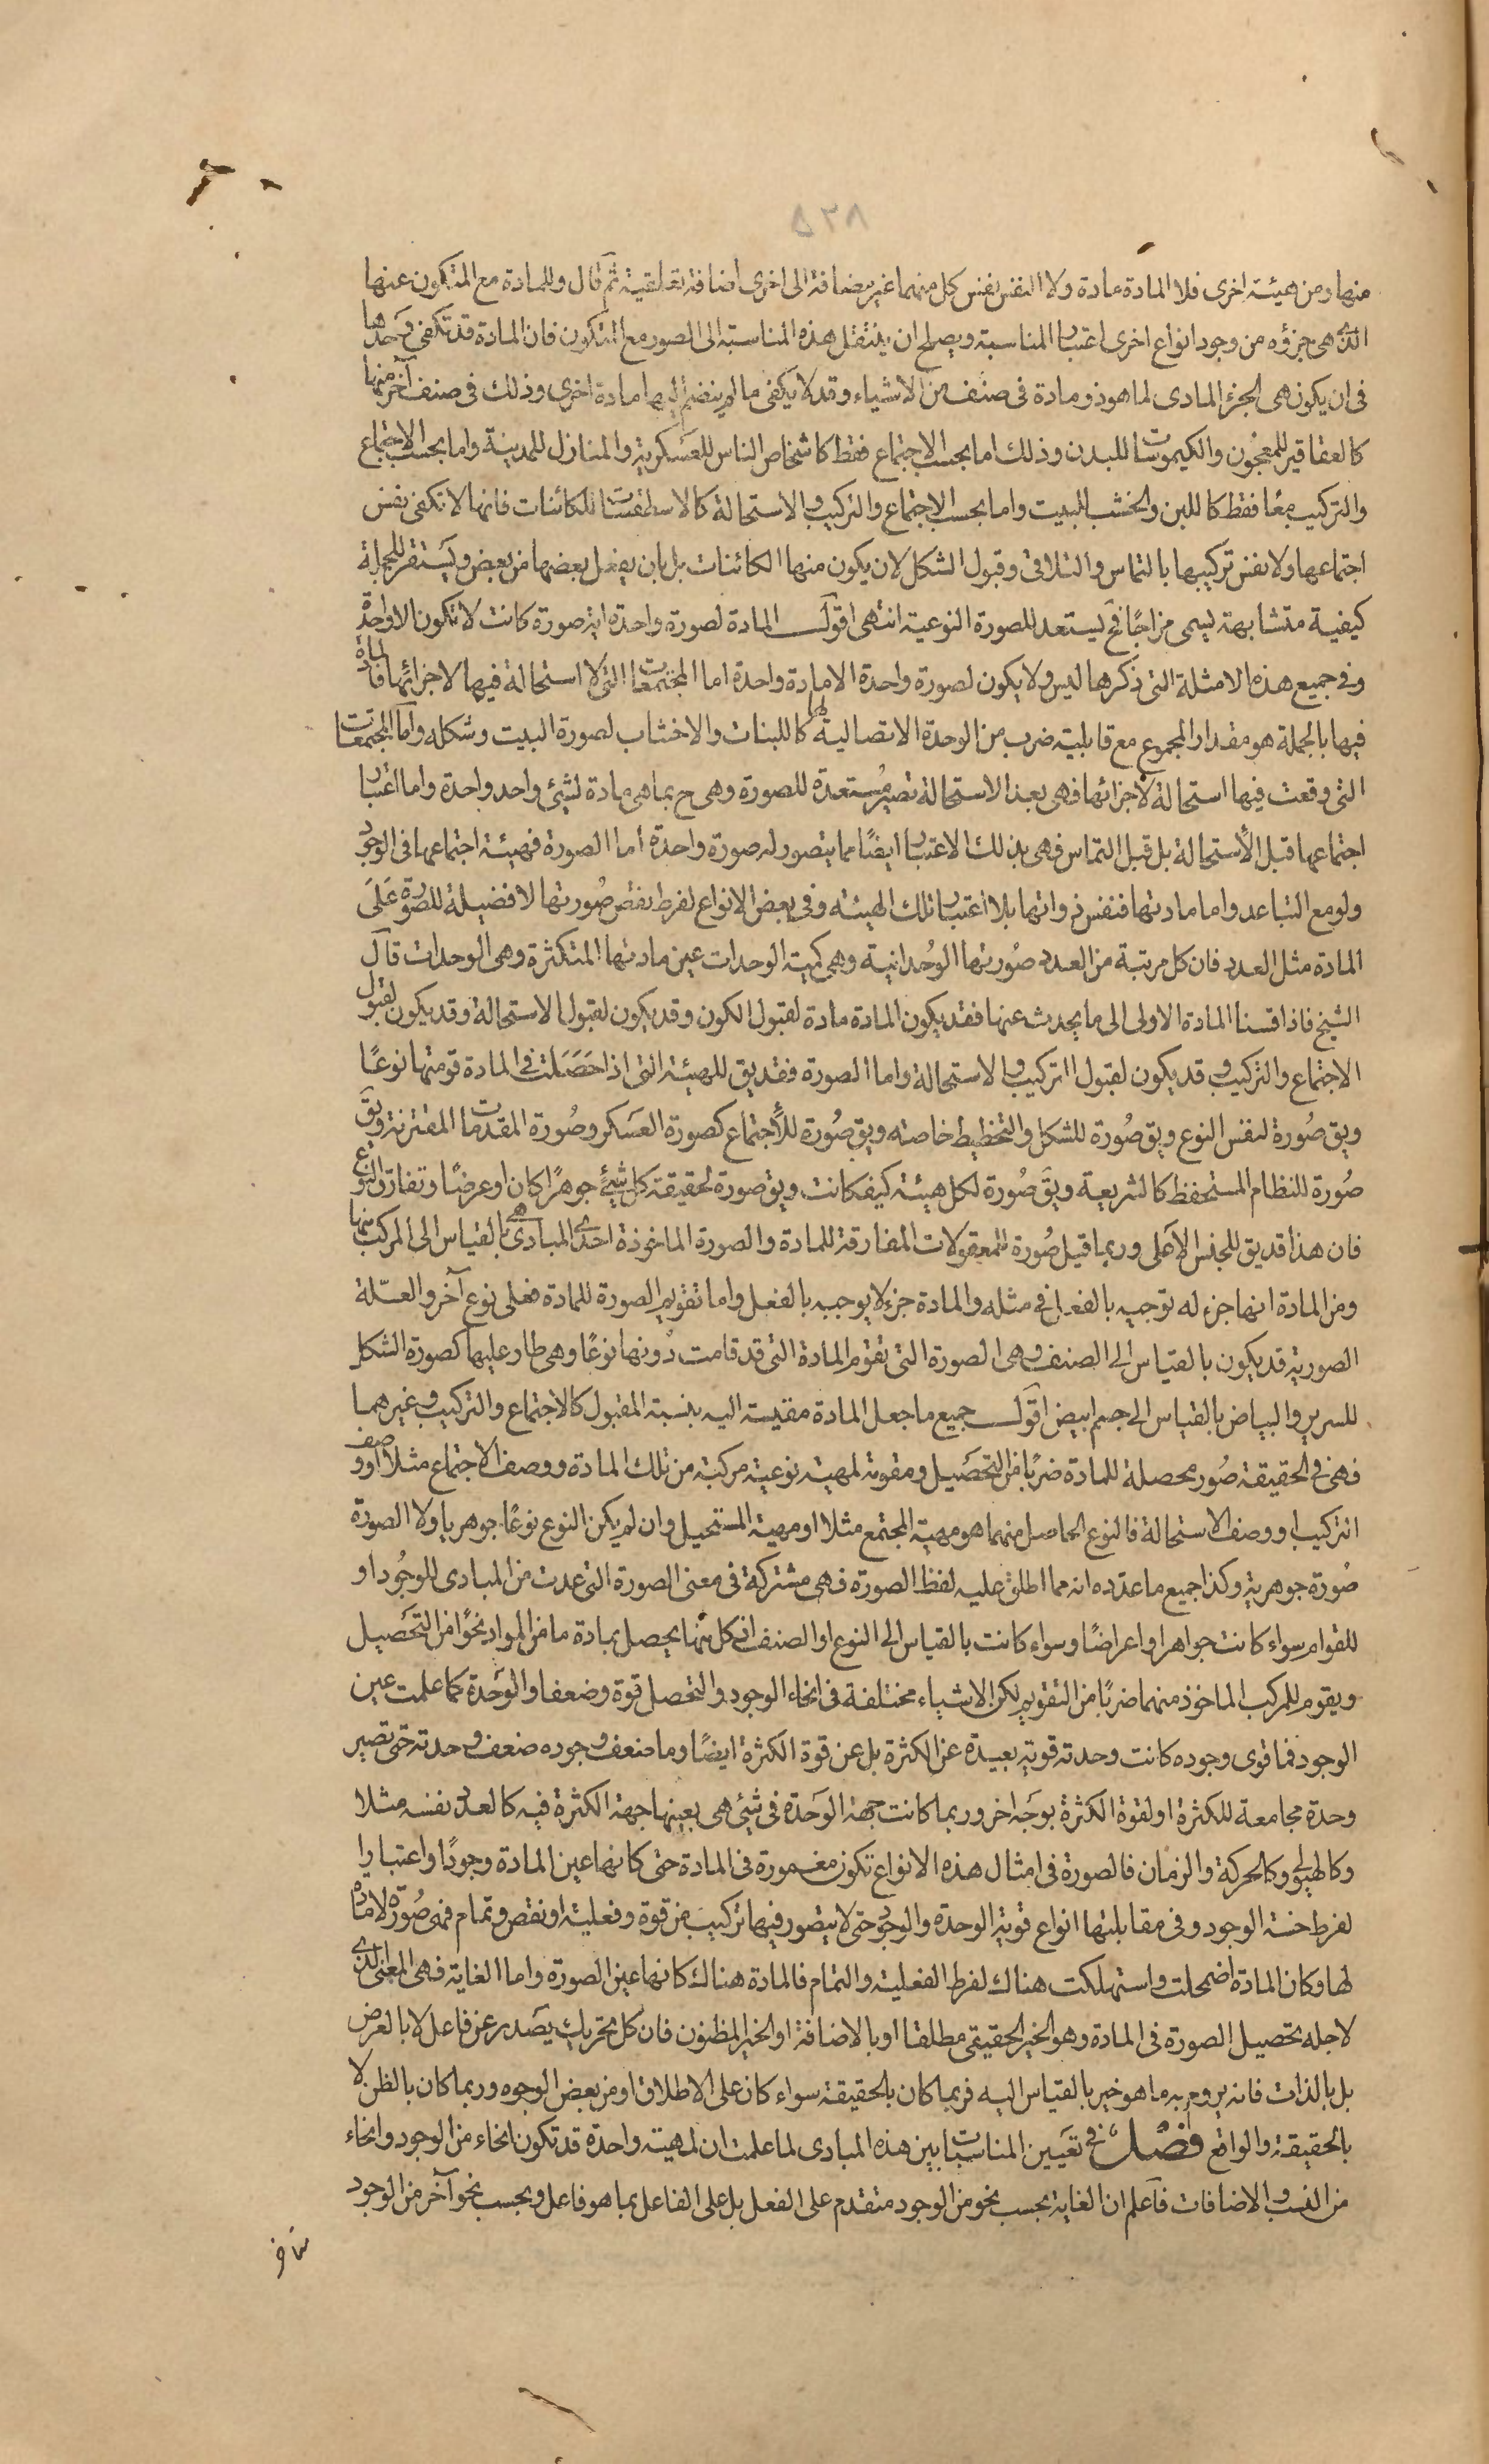 ٥٢٨
منها ومن هيئة اخرى فلا المادة مادة ولا النفس نفس كل منهما غير مضافة الى اخرى اضافة تعلقية ثم قال وللمادة مع المتكون عنها
الذى هى جزؤه من وجود انواع اخرى اعتبار المناسبة ويصلح ان ينتقل هذه المناسبة الى الصور مع المتكون فان المادة قد تكفى وحدها
فى ان يكون هى الجزء المادى لما هو ذو مادة فى صنف من الاشياء وقد لا يكفى ما لم ينضم اليها مادة اخرى وذلك فى صنف آخر منها
كالعقاقير للمعجون والكيموسات للبدن وذلك اما بحسب الاجتماع فقط كاشخاص الناس للعسكرية والمنازل للمدينة واما بحسب الاجتماع
والتركيب معًا فقط كاللبن والخشب للبيت واما بحسب الاجتماع والتركيب والاستحالة كالاسطقسات للكائنات فانها لا تكفى نفس
اجتماعها ولا نفس تركيبها بالتماس والتلاقى وقبول الشكل لان يكون منها الكائنات بل بان يفعل بعضها من بعض ويستقر للجملة
كيفية متشابهة يسمى مزاجًا فح يستعد للصورة النوعية انتهى اقول المادة لصورة واحدة اية صورة كانت لا تكون الا واحدة
وفى جميع هذه الامثلة التى ذكرها ليس ولا يكون لصورة واحدة الا مادة واحدة اما المجتمعات التى لا استحالة فيها لاجزائها فالمادة
فيها بالجملة هو مقدار المجموع مع قابلية ضرب من الوحدة الاتصالية لها كاللبنات والاخشاب لصورة البيت وشكله واما المجتمعات
التى وقعت فيها استحالة لاجزائها فهى بعد الاستحالة تصير مستعدة للصورة وهى ح بما هى مادة لشئ واحد واحدة واما اعتبار
اجتماعها قبل الاستحالة بل قبل التماس فهى بذلك الاعتبار ايضًا مما يتصور له صورة واحدة اما الصورة فهيئة اجتماعها فى الوجود
ولو مع التباعد واما مادتها فنفس ذواتها بلا اعتبار تلك الهيئة وفى بعض الانواع لفرط نقص صورتها لا فضيلة للصورة على
المادة مثل العدد فان كل مرتبة من العدد صورتها الوحدانية وهى كمية الوحدات عين مادتها المتكثرة وهى الوحدات قال
الشيخ فاذا قسنا المادة الاولى الى ما يحدث عنها فقد يكون المادة مادة لقبول الكون وقد يكون لقبول الاستحالة وقد يكون لقبول
الاجتماع والتركيب وقد يكون لقبول التركيب والاستحالة واما الصورة فقد يق للهيئة التى اذا حصلت فى المادة قومتها نوعًا
ويق صورة لنفس النوع ويق صورة للشكل والتخطيط خاصته ويق صورة للاجتماع كصورة العسكر وصورة المقدمات المقترنة ويق
صورة للنظام المستحفظ كالشريعة ويق صورة لكل هيئة كيف كانت ويق صورة لحقيقة كل شئ جوهرًا كان او عرضًا وتفارق النوع
فان هذا قد يق للجنس الاعلى وربما قيل صورة للمعقولات المفارقة للمادة والصورة الماخوذة احدى المبادى هى بالقياس الى المركب منها
ومن المادة انها جزء له توجبه بالفعل فى مثله والمادة جزء لا يوجبه بالفعل واما تقويم الصورة للمادة فعلى نوع آخر والعلة
الصورية قد يكون بالقياس الى الصنف وهى الصورة التى تقوم المادة التى قد قامت دونها نوعًا وهى طار عليها كصورة الشكل
للسرير والبياض بالقياس الى جسم ابيض اقول جميع ما جعل المادة مقيسة اليه بنسبة المقبول كالاجتماع والتركيب وغيرهما
فهى فى الحقيقة صور محصلة للمادة ضربًا من التحصيل ومقومة لمهية نوعية مركبة من تلك المادة ووصف الاجتماع مثلا او وصف
التركيب او وصف الاستحالة فالنوع الحاصل منهما هو مهية المجتمع مثلا او مهية المستحيل وان لم يكن النوع نوعًا جوهريا ولا الصورة
صورة جوهرية وكذا جميع ما عدده انه مما اطلق عليه لفظ الصورة فهى مشتركة فى معنى الصورة التى عدت من المبادى للوجود او
للقوام سواء كانت جواهر او اعراضًا وسواء كانت بالقياس الى النوع او الصنف اذ كل منها يحصل بمادة ما من المواد نحوًا من التحصيل
ويقوم للمركب الماخوذ منهما ضربًا من التقويم لكن الاشياء مختلفة فى انحاء الوجود والتحصل قوة وضعفا والوحدة كما علمت عين
الوجود فما قوى وجوده كانت وحدته قوية بعيدة عن الكثرة بل عن قوة الكثرة ايضًا وما ضعف وجوده ضعف وحدته حتى تصير
وحدة مجامعة للكثرة او لقوة الكثرة بوجه اخر وربما كانت جهة الوحدة فى شئ هى بعينها جهة الكثرة فيه كالعدد نفسه مثلا
وكالهيولى وكالحركة والزمان فالصورة فى امثال هذه الانواع تكون مغمورة فى المادة حتى كانها عين المادة وجودًا واعتبارا
لفرط خسة الوجود وفى مقابلتها انواع قوية الوحدة والوجود حتى لا يتصور فيها تركيب من قوة وفعلية او نقص وتمام فهى صورة لا مادة
لها وكان المادة اضمحلت واستهلكت هناك لفرط الفعلية والتمام فالمادة هناك كانها عين الصورة واما الغاية فهى المعنى الذى
لاجله تحصيل الصورة فى المادة وهو الخير الحقيقى مطلقا او بالاضافة او الخير المظنون فان كل تحريك يصدر عن فاعل لا بالعرض
بل بالذات فانه يروم به ما هو خير بالقياس اليه فربما كان بالحقيقة سواء كان على الاطلاق او من بعض الوجوه وربما كان بالظن لا
بالحقيقة والواقع فصل فى تعيين المناسبات بين هذه المبادى لما علمت ان لمهية واحدة قد تكون انحاء من الوجود وانحاء
من النسب والاضافات فاعلم ان الغاية بحسب نحو من الوجود متقدم على الفعل بل على الفاعل بما هو فاعل وبحسب نحو آخر من الوجود